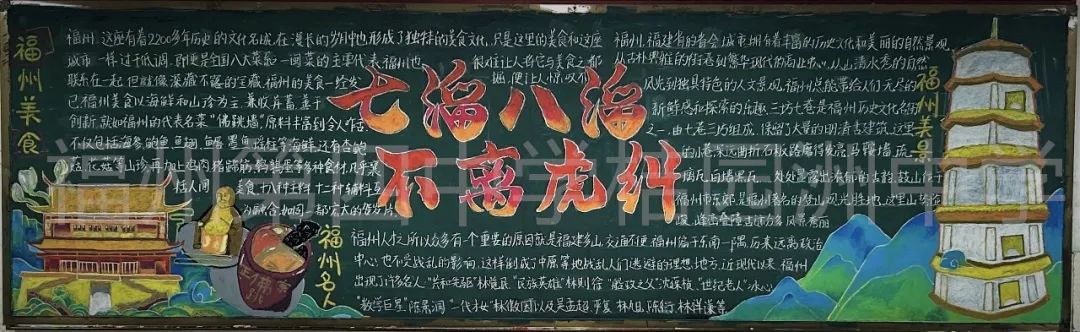 七溜八溜
不离虎纠
福州美食
福州,这座有着2200多年历史的文化名城,在漫长的岁月中也形成了独特的美食文化,只是这里的美食和这座
城市一样过于低调,即便是全国八大菜系一闽菜的主要代表,福州也
很难让人将它与美食之都
联系在一起,但就像深藏不露的宝藏,福州的美食一经发
掘,便让人惊叹不
已,福州美食以海鲜和山珍为主,兼收并蓄,善于
创新,就如福州的代表名菜"佛跳墙",原料丰富到令人咋舌,
不仅包括海参鲍鱼,鱼翅,
瑶柱等海鲜,还有杏鲍
菇,花菇等山珍再加上鸡肉,猪蹄筋,鸽鹑蛋等多种食材,几乎囊
括人间
美食,十八种主料,十二种辅料互
为融合,如同一部宏大的
福州美景
福州,福建省的省会,城市拥有着丰富的历史文化和美丽的自然景观,
从古朴典雅的街巷到繁华现代的商业中心,从山清水秀的自然
风光到独具特色的人文景观,福州总能带给人们无尽的
新鲜感和探索的乐趣,三坊七巷是福州历史文化名街
之一,由七巷三坊组成,保留了大量的明清古建筑,这里
的小巷深远曲折石板路磨得发亮,马鞍墙,琉
璃瓦,白墙黑瓦,处处显露出浓郁的古韵,鼓山位于
福州市东郊,是福州著名的登山观光胜地,这里山势
峻,峰峦叠嶂,古
风景秀丽
福州名人
福州人才之所以众多有一个重要的原因就是福建多山,交通不便,福州偏于东南一隅,历来远离政治
中心,也不是战乱的影响,这样则成了中原等地战乱人们逃避的理想地方,近现代以来,福州
出现了许多名人,"共和先驱"林觉民,"民族英雄"林则徐,"船政之父"沈葆桢,"世纪老人"冰心,
"数学巨星"陈景润,"一代才女"林徽因以及吴孟超,严复,林旭,陈衍,林祥谦等
佛跳